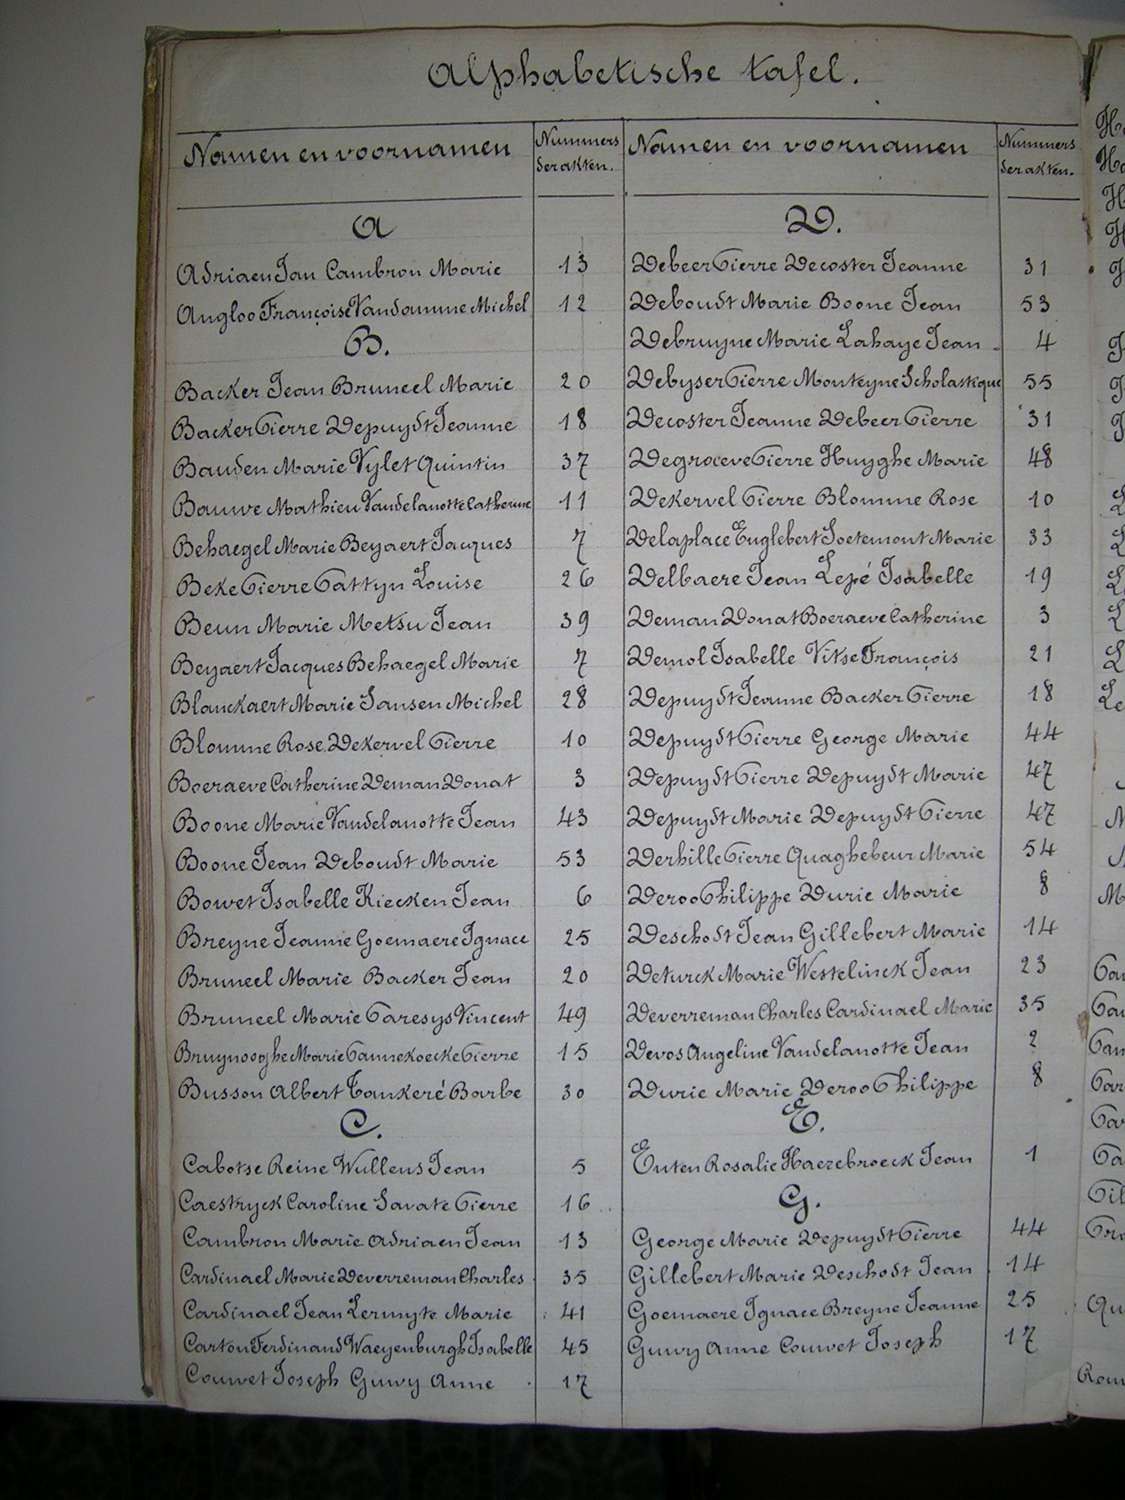 Alphabetische tafel.
Namen en voornamen
Nummers
der akten.
A
Adriaen Jan Cambron Marie 13
Angloo Françoise Vandamme Michel 12
B.
Backer Jean Bruneel Marie 20
Backer Pierre Depuydt Jeanne 18
Bauden Marie Vylet Quintin 37
Bauwe Mathieu Vandelanotte Catherine 11
Behaegel Marie Beyaert Jacques 7
Beke Pierre Pattyn Louise 26
Beun Marie Metsu Jean 39
Beyaert Jacques Behaegel Marie 7
Blanckaert Marie Jansen Michel 28
Blomme Rose Dekervel Pierre 10
Boeraeve Catherine Deman Donat 3
Boone Marie Vandelanotte Jean 43
Boone Jean Deboudt Marie 53
Bowet Isabelle Kiecken Jean 6
Breyne Jeanne Goemaere Ignace 25
Bruneel Marie Backer Jean 20
Bruneel Marie Paresys Vincent 49
Bruynooghe Marie Pannekoecke Pierre 15
Busson Albert Tankeré Barbe 30
C.
Cabotse Reine Wullens Jean 5
Caestryck Caroline Savate Pierre 16
Cambron Marie Adriaen Jean 13
Cardinael Marie Deverreman Charles 35
Cardinael Jean Lermyte Marie 41
Carton Ferdinand Waeyenburgh Isabelle 45
Couwet Joseph Guwy Anne 17
Namen en voornamen
Nummers
der akten.
D.
Debeer Pierre Decoster Jeanne 31
Deboudt Marie Boone Jean 53
Debruyne Marie Lahaye Jean 4
Debyser Pierre Monteyne Scholastique 55
Decoster Jeanne Debeer Pierre 31
Degroeve Pierre Huyghe Marie 48
Dekervel Pierre Blomme Rose 10
Delaplace Englebert Soetemont Marie 33
Delbaere Jean Lepé Isabelle 19
Deman Donat Boeraeve Catherine 3
Demol Isabelle Vitse François 21
Depuydt Jeanne Backer Pierre 18
Depuydt Pierre George Marie 44
Depuydt Pierre Depuydt Marie 47
Depuydt Marie Depuydt Pierre 47
Derhille Pierre Quaghebeur Marie 54
Deroo Philippe Durie Marie 8
Deschodt Jean Gillebert Marie 14
Deturck Marie Westelinck Jean 23
Deverreman Charles Cardinael Marie 35
Devos Angeline Vandelanotte Jean 2
Durie Marie Deroo Philippe 8
E.
Euten Rosalie Haezebroeck Jean 1
G.
George Marie Depuydt Pierre 44
Gillebert Marie Deschodt Jean 14
Goemaere Ignace Breyne Jeanne 25
Guwy Anne Couwet Joseph 17